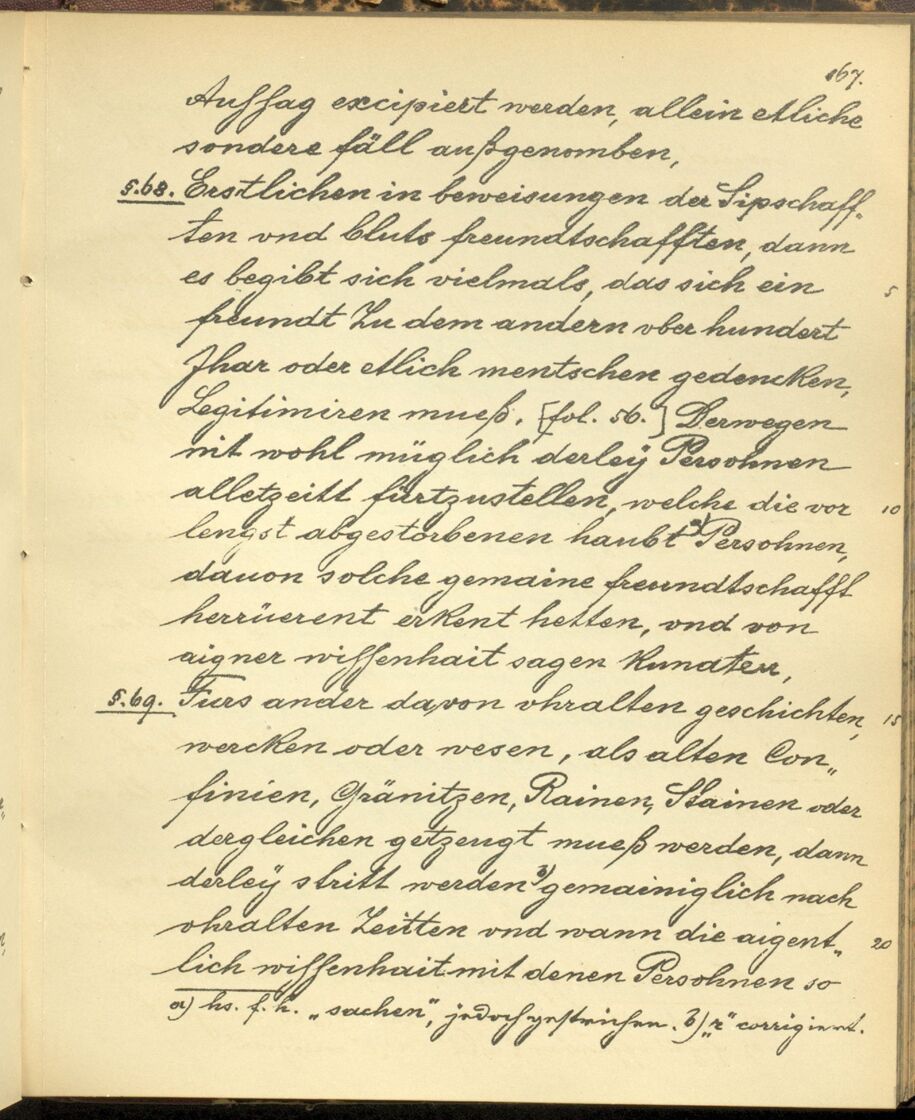 167.
Aufsag excipiert werden, allein etliche
sondere fäll außgenomben,
§.68. Erstlichen in beweisungen der Sipschaff„
ten vnd bluts freundtschafften, dann
es begibt sich vielmals, das sich ein
5
freundt Zu dem andern vber hundert
Jhar oder etlich mentschen gedencken,
Legitimiren mueß. [fol. 56.] Derwegen
nit wohl müglich derleÿ Persohnen
alletzeitt fürtzustellen, welche die vor
10
lengst abgestorbenen haubt a) Persohnen,
dauon solche gemaine freundtschafft
herrüerent erkent hetten, vnd von
aigner wissenhait sagen kundten,
§.69. Fürs ander da,von vhralten geschichten,
15
wercken oder wesen, als alten Con„
finien, Gränitzen, Rainen, Stainen oder
dergleichen getzeugt mueß werden, dann
derleÿ stritt werden b) gemainiglich nach
vhralten Zeitten vnd wann die aigent„
20
lich wissenhait mit denen Persohnen so
a) hs. f. h. „sachen", jedoch gestrichen. b) „r" corrigiert.